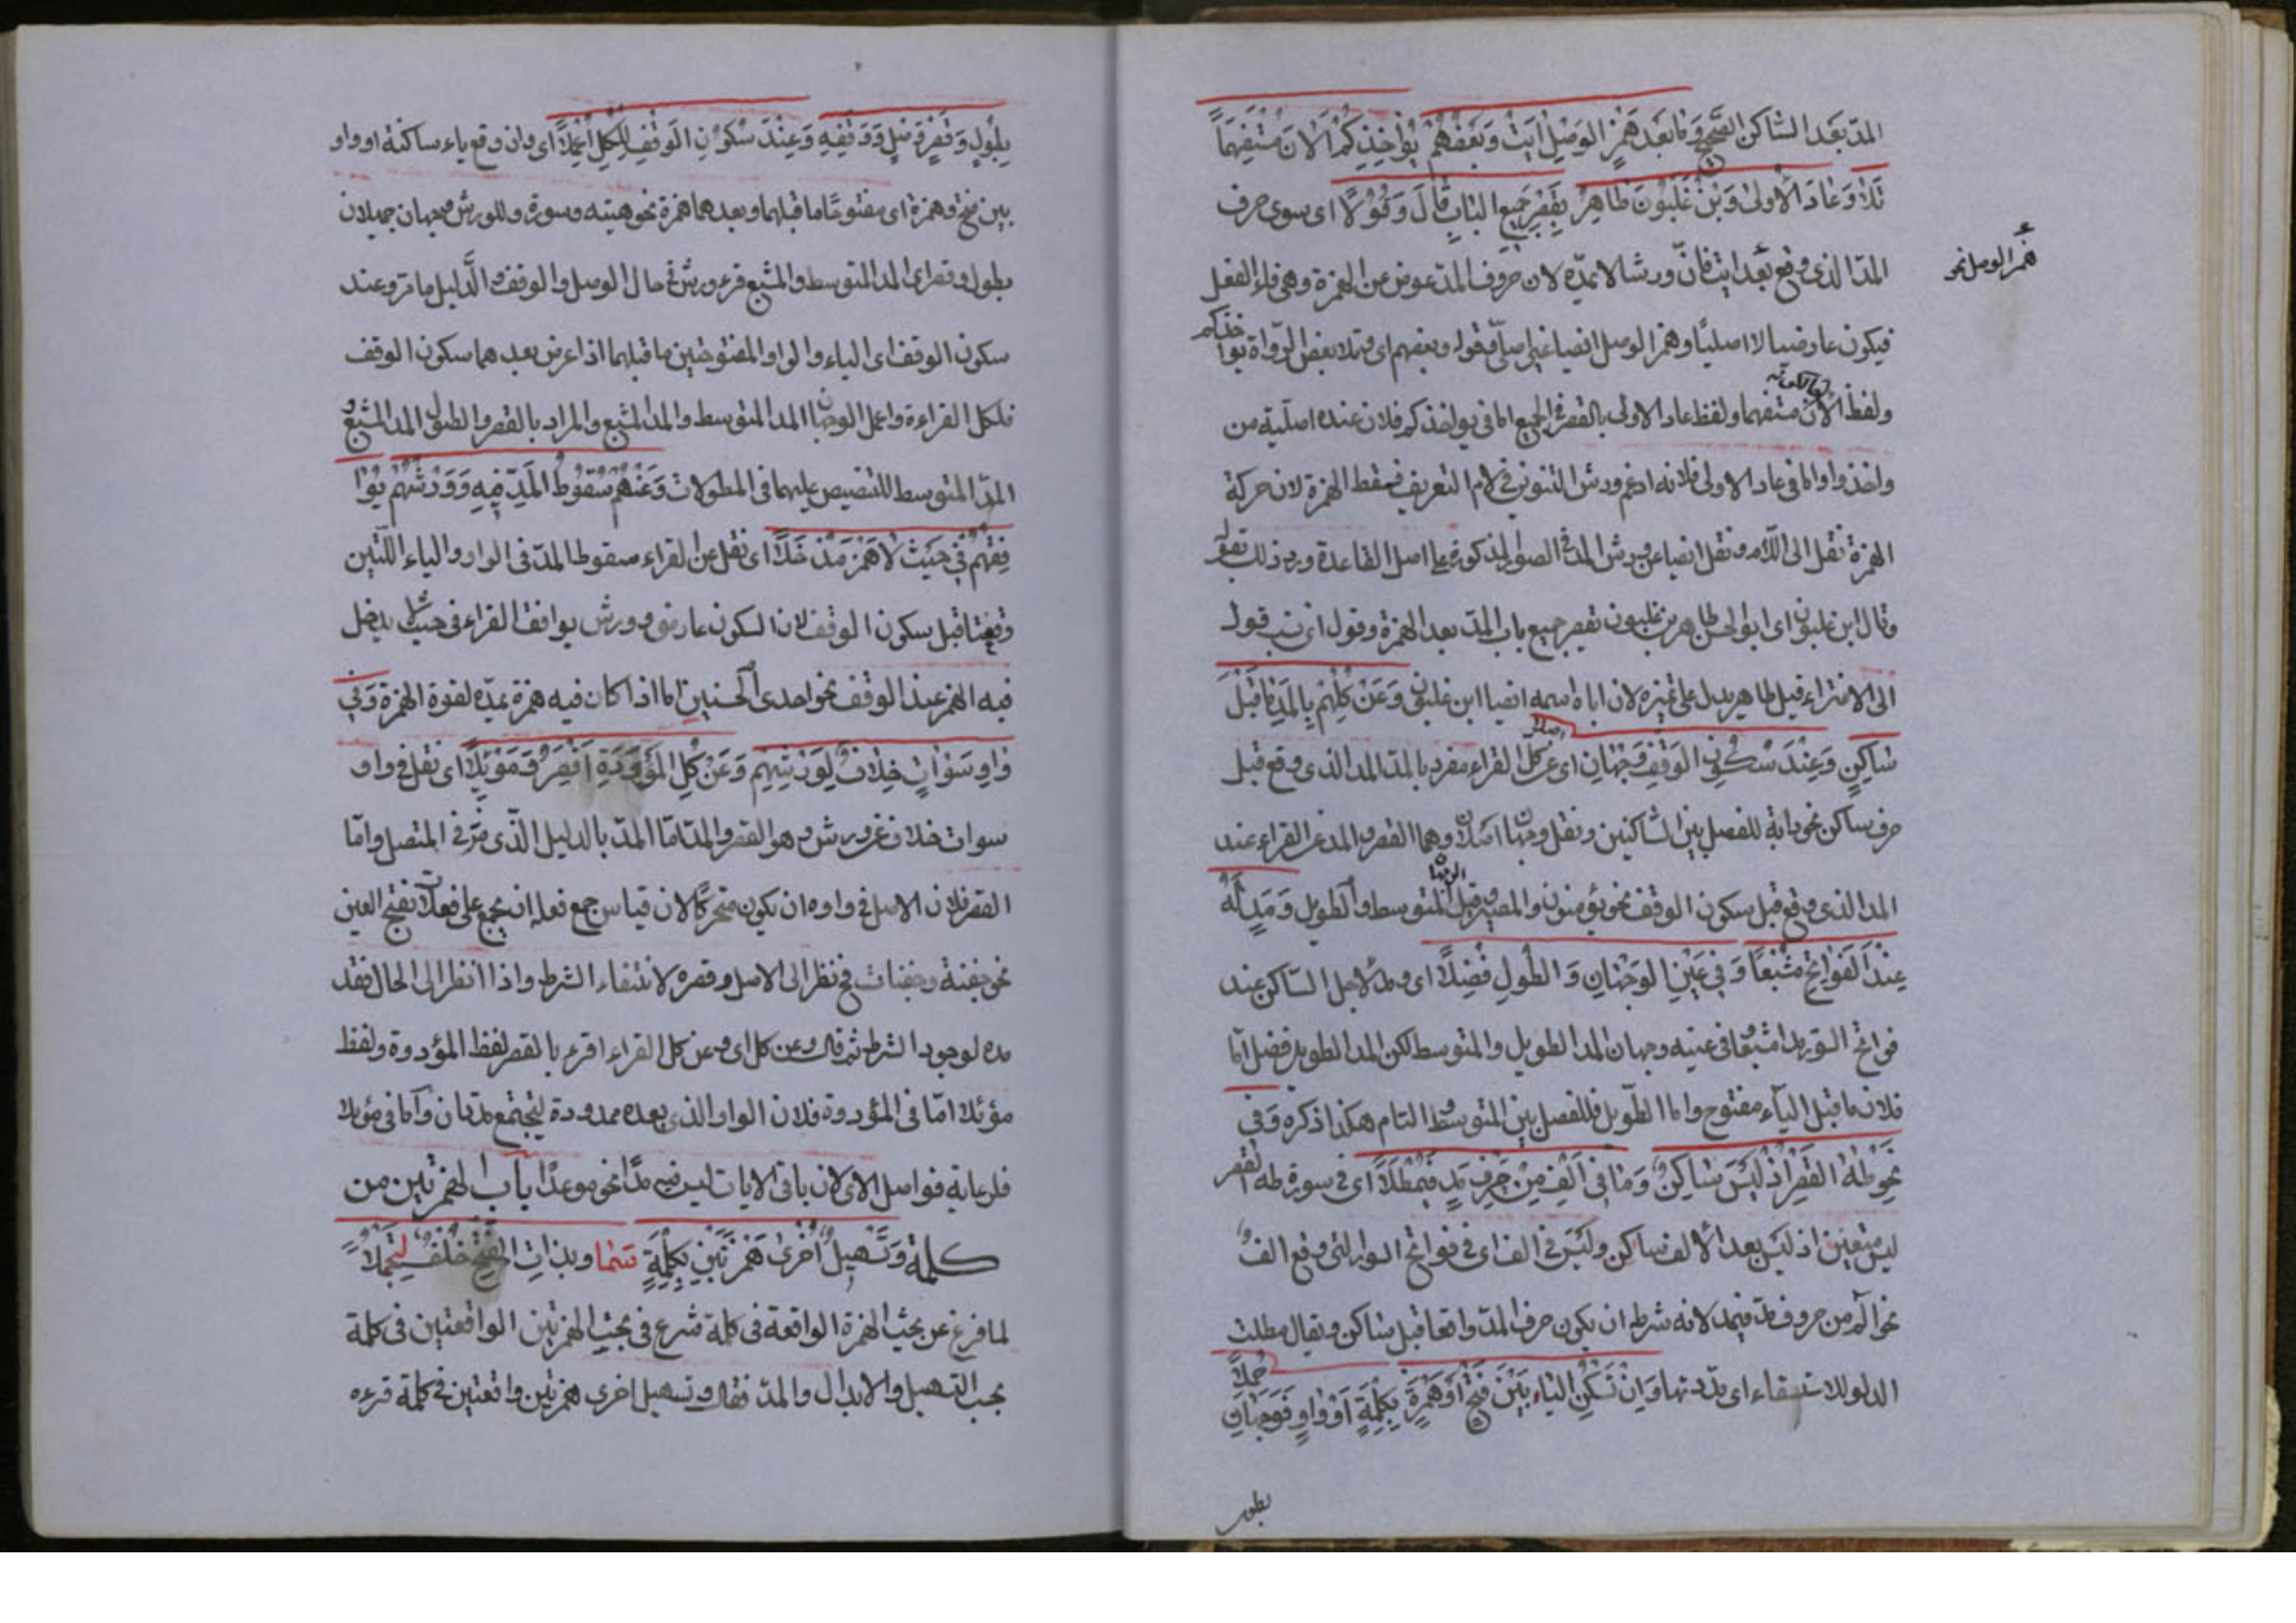 المدّ بعد الساكن الصحيح وَمَا بَعْدَ هَمْزِ الوَصْلِ ايتِ وَبَعْضُهُمْ يُؤَاخِذُكُمُ الآنَ مُسْتَفْهِمًا
تَلَا وَعَادَ الْأُولَى وَابْنُ غَلْبُونَ طَاهِرٌ بِقَصْرِ جَمِيعِ البَابِ قَالَ وَقَوَّلَا اى سوى حرف
المدّ الذى وقع بعد ايت فانّ ورشا لا يمدّه لان حروف المدّ عوض عن الهمزة وهى فاء الفعل
همز الوصل نحو
فيكون عارضيا لا اصليًا وهمز الوصل ايضا غير اصلىّ فقوله وبعضهم اى وتلا بعض الرواة يؤاخذكم
ولفظ الآن مستفهما ولفظ عاد الاولى بالقصر فى الجميع اما فى يؤاخذكم فلان عنده اصلية من
واخذ واما فى عاد الاولى فلانه ادغم ورش التنوين فى لام التعريف فسقط الهمزة لان حركة
الهمزة نقل الى اللام ونقل ايضا عن ورش المد فى الصور المذكورة على اصل القاعدة وبه
وقال ابن غلبون اى ابو الحسن طاهر بن غلبون بقصر جميع باب المدّ بعد الهمزة وقوّل اى نسب قوله
الى الافتراء قيل طاهر يدل على غيره لان اباه اسمه ايضا ابن غلبون وَعَنْ كُلِّهِمْ بِالمَدِّ مَا قَبْلَ
سَاكِنٍ وَعِنْدَ سُكُونِ الوَقْفِ وَجْهَانِ اُصِّلَا اى عن كل القراء مفرد بالمد المد الذى وقع قبل
حرف ساكن نحو دابة للفصل بين الساكنين ونقل وجهان اصلان وهما القصر والمد عن القراء عند
المد الذى وقع قبل سكون الوقف نحو يؤمنون والمصير وقيل المتوسط والطويل وَمُدَّ لَهُ
عِنْدَ الفَوَاتِحِ مُشْبِعًا وَفِى عَيْنٍ الوَجْهَانِ وَالطُّولُ فُضِّلَا اى ومد لاجل الساكن عند
فواتح السور مدا مشبعا فى عينه وجهان المد الطويل والمتوسط لكن المد الطويل فضل اما
فلان ما قبل الياء مفتوح واما الطويل فللفصل بين المتوسط التام هكذا ذكره وَفِى
نَحْوِ طٰهَ القَصْرُ اِذْ لَيْسَ سَاكِنٌ وَمَا فِى اَلِفْ مِنْ حَرْفِ مَدٍّ فَيُمْطَلَا اى فى سورة طه القصر
ليس متعين اذ ليس بعد الالف ساكن وليس فى الف اى فى فواتح السور التى وقع الف
نحو الم من حروف مدّ فيمد لانه شرط ان يكون حرف المدّ واقعا قبل ساكن ويقال مطلت
الدلو للاستسقاء اى مددتها وَاِنْ تَسْكُنِ اليَاءُ بَيْنَ فَتْحٍ وَهَمْزَةٍ بِكِلْمَةٍ اَوْ وَاوٍ فَوَجْهَانِ جُمِّلَا
بطول
بِطُولٍ وَقَصْرٍ وَصْلِ وَوَقْفِهِ وَعِنْدَ سُكُونِ الوَقْفِ لِلْكُلِّ اُعْمِلَا اى وان وقع ياء ساكنة او واو
بين فتح وهمزة اى مفتوحًا ما قبلهما وبعدهما همزة نحو هيئه وسوءة وللورش وجهان جميلان
بطول وقصر اى المد المتوسط والمشبع حال الوصل والوقف والدّليل ما مرّ وعند
سكون الوقف اى الياء والواو المفتوحتين ما قبلهما اذا عرض بعدهما سكون الوقف
فلكل القراءة واعمل الوجهان المد المتوسط والمد المشبع والمراد بالقصر والطول المد المشبع و
المدّ المتوسط للتنصيص عليهما فى المطولات وَعَنْهُمْ سُقُوطُ المَدِّ فِيهِ وَوَرْشُهُمْ يُوَا
فِقُهُمْ فِى حَيْثُ لَا هَمْزَ مُدْخَلَا اى نقل عن القراء سقوط المدّ فى الواو والياء اللّتين
وقعتا قبل سكون الوقف لان السكون عارض وورش يوافق القراء فى حيث لا يدخل
فيه الهمز عند الوقف نحو احدى الحسنيين اما اذا كان فيه همزة يمدّه لقوة الهمزة وَفِى
وَاوِ سَوْآتٍ خِلَافٌ لِوَرْشِهِمْ وَعَنْ كُلٍّ المَوْؤُدَةُ اقْصُرْ وَمَوْئِلَا اى نقل فى واو
سوات خلاف عن ورش وهو القصر والمد امّا المدّ بالدليل الّذى مرّ فى المتصل وامّا
القصر فلان الاصل فى واوه ان يكون متحركًا لان قياس جمع فعلة ان يجمع على فعلات بفتح العين
نحو جفنة وجفنات فح نظر الى الاصل وقصره لانتفاء الشرط واذا انظر الى الحال فقد
مده لوجود الشرط ثم قال وعن كل اى وعن كل القراء اقرء بالقصر لفظ المؤدوة ولفظ
مؤئلا امّا فى المؤدوة فلان الواو الذى بعده ممدودة ليجتمع مدتان وامّا فى مؤيلا
فلرعاية فواصل الاى لان باقى الايات ليس فيه مدّا نحو موعدًا باب الهمزتين من
كلمة وَتَسْهِيلُ اُخْرَى هَمْزَتَيْنِ بِكِلْمَةٍ سَمَا وبِذَاتِ الفَتْحِ خُلْفٌ لِتَجْمُلَا
لما فرغ عن بحث الهمزة الواقعة فى كلمة شرع فى بحث الهمزتين الواقعتين فى كلمة
بحب التسهيل والابدال والمدّ فقال وتسهيل اخرى همزتين واقعتين فى كلمة قرءه